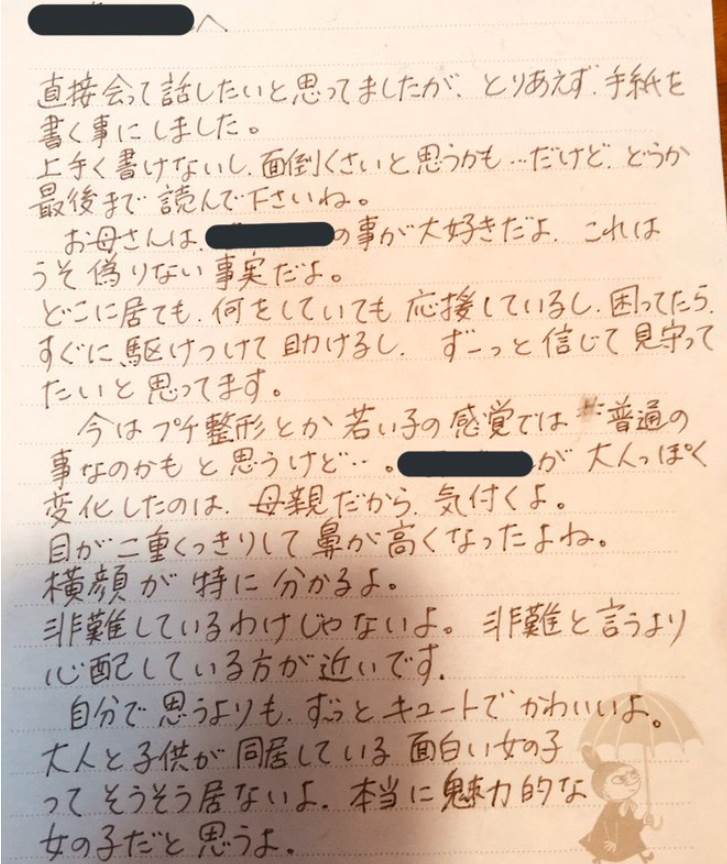 へ
直接会って話したいと思ってましたが、とりあえず、手紙を
書く事にしました。
上手く書けないし、面倒くさいと思うかも…だけど、どうか
最後まで読んで下さいね。
お母さんは、の事が大好きだよ、これは
うそ偽りない事実だよ。
どこに居ても、何をしていても応援しているし、困ってたら、
すぐに駆けつけて助けるし、ずーっと信じて見守って
たいと思ってます。
今はプチ整形とか若い子の感覚では普通の
事なのかもと思うけど…。が大人っぽく
変化したのは、母親だから、気付くよ。
目が二重くっきりして鼻が高くなったよね。
横顔が特に分かるよ。
非難しているわけじゃないよ。非難と言うより
心配している方が近いです。
自分で思うよりも、ずっとキュートでかわいいよ。
大人と子供が同居している面白い女の子
ってそうそう居ないよ、本当に魅力的な
女の子だと思うよ。